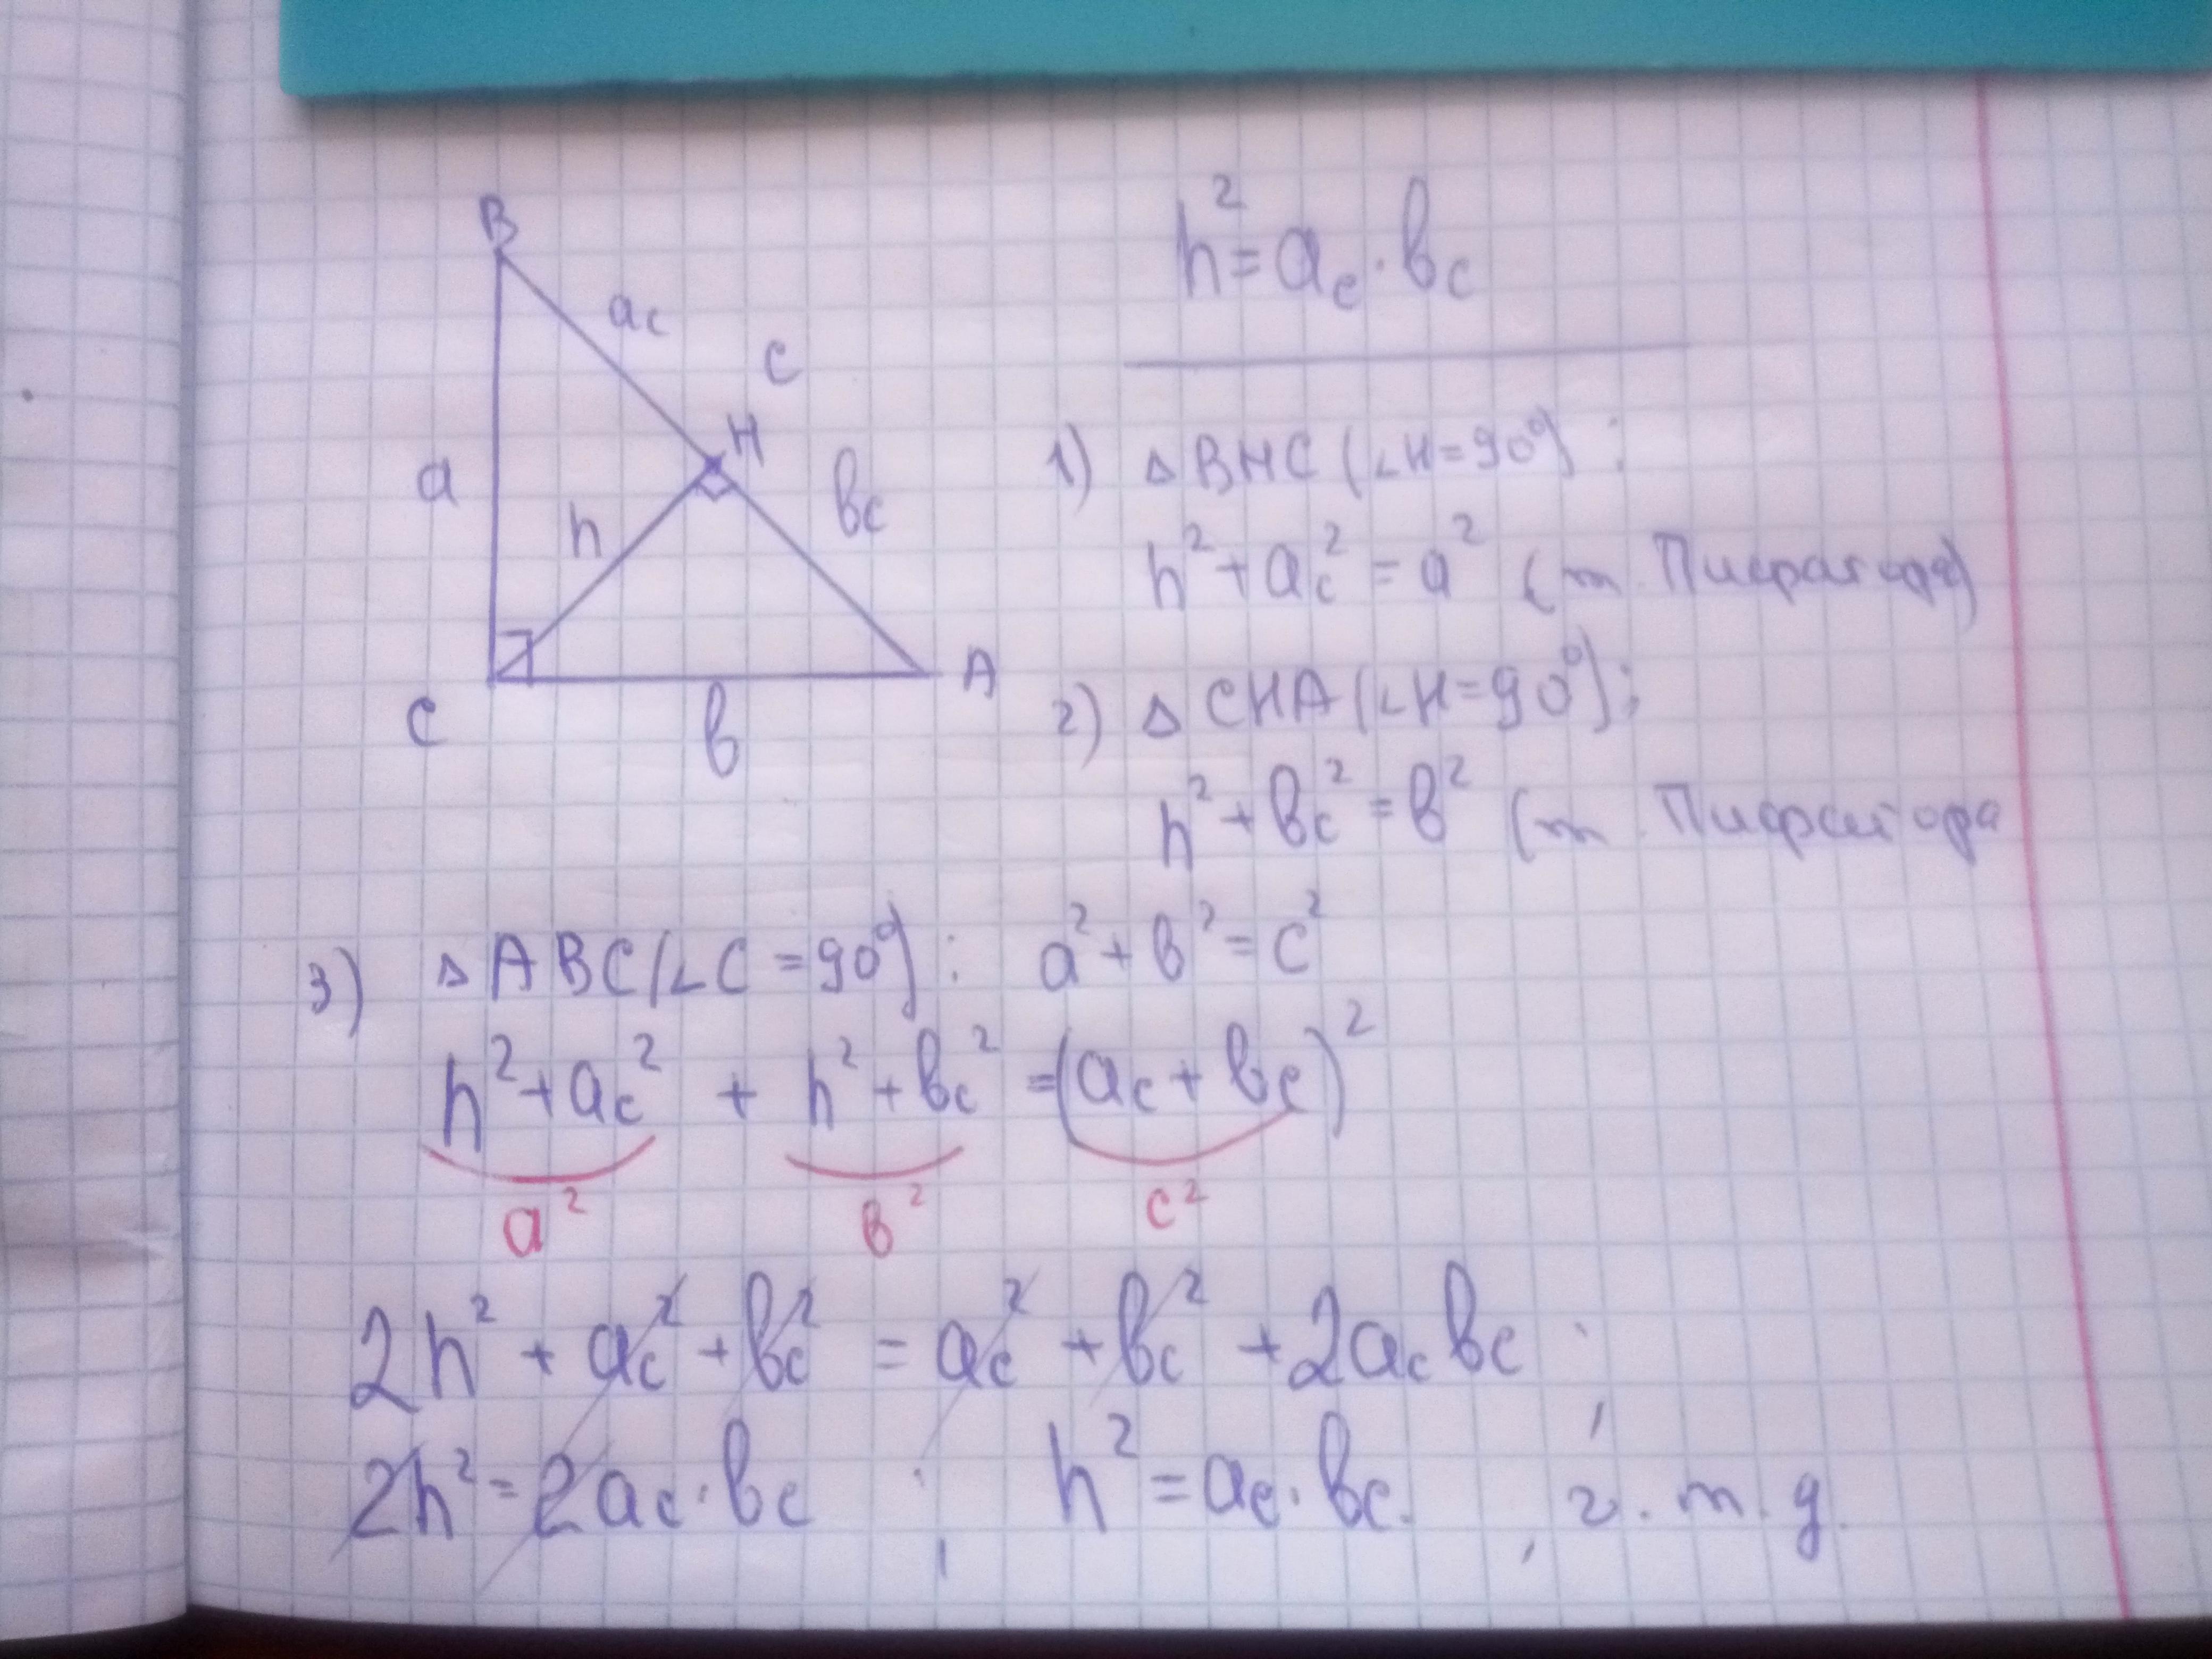 B
a_c
c
H
a
b_c
h
C
b
A
h² = a_c · b_c
1) △ BHC (∠H = 90°):
h² + a_c² = a² (т. Пифагора)
2) △ CHA (∠H = 90°):
h² + b_c² = b² (т. Пифагора
3) △ ABC (∠C = 90°): a² + b² = c²
h² + a_c² + h² + b_c² = (a_c + b_c)²
a² b² c²
2h² + a_c² + b_c² = a_c² + b_c² + 2a_c b_c ;
2h² = 2a_c · b_c ; h² = a_c · b_c. , ч. т. д.